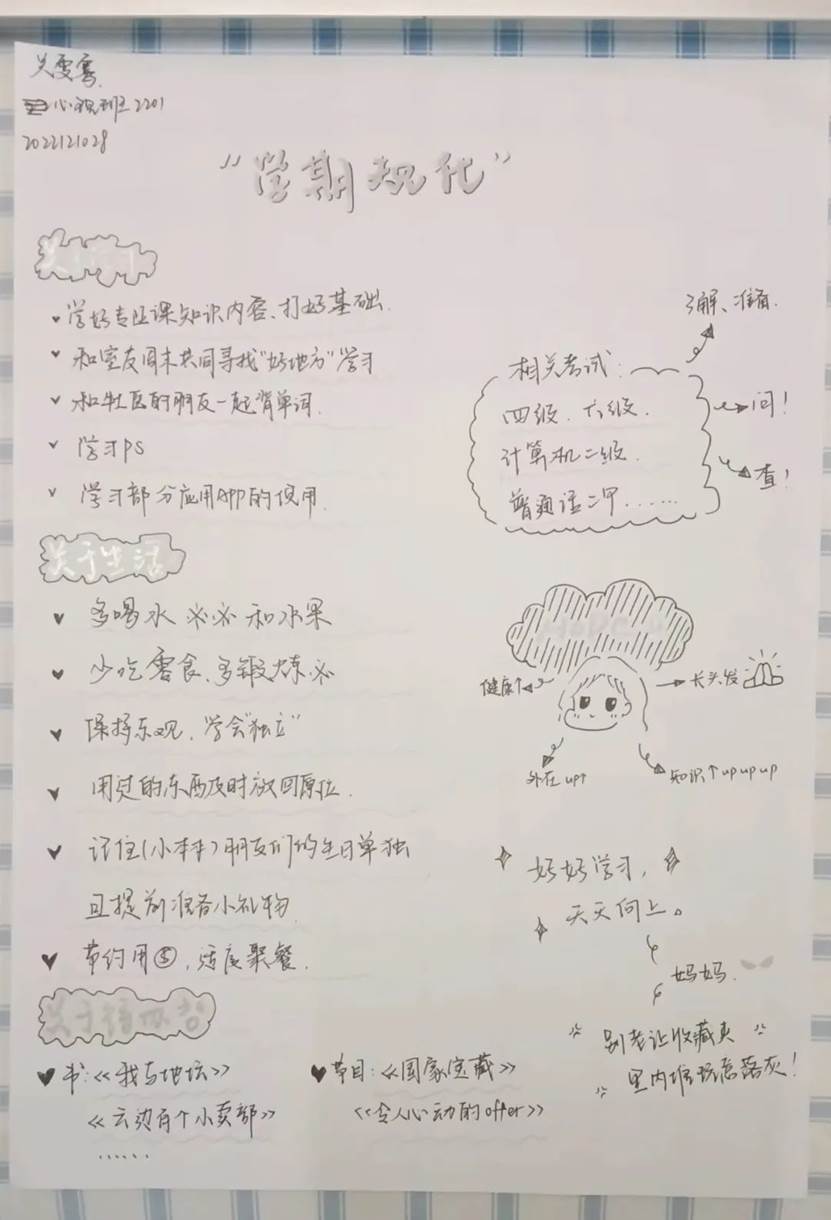 心视班2201
2022121028
“学期规化”
关于学习
学好专业课知识内容、打好基础.
和室友周末共同寻找“好地方”学习
和社区的朋友一起背单词.
学习PS
学习部分应用APP的使用.
相关考试：
四级. 六级.
计算机二级.
普通话二甲......
了解、准备.
问！
查！
关于生活
多喝水 和水果
少吃零食、多锻炼
保持乐观. 学会“独立”
用过的东西及时放回原位.
记住(小本本)朋友们的生日单独
且提前准备小礼物.
节约用⑤，适度聚餐.
健康↑
长头发
外在up↑
知识↑upupup
好好学习，
天天向上。
妈妈.
别老让收藏夹
里内堆玩意落灰！
关于
书:《我与地坛》
《云边有个小卖部》
......
节目:《国家宝藏》
《令人心动的offer》